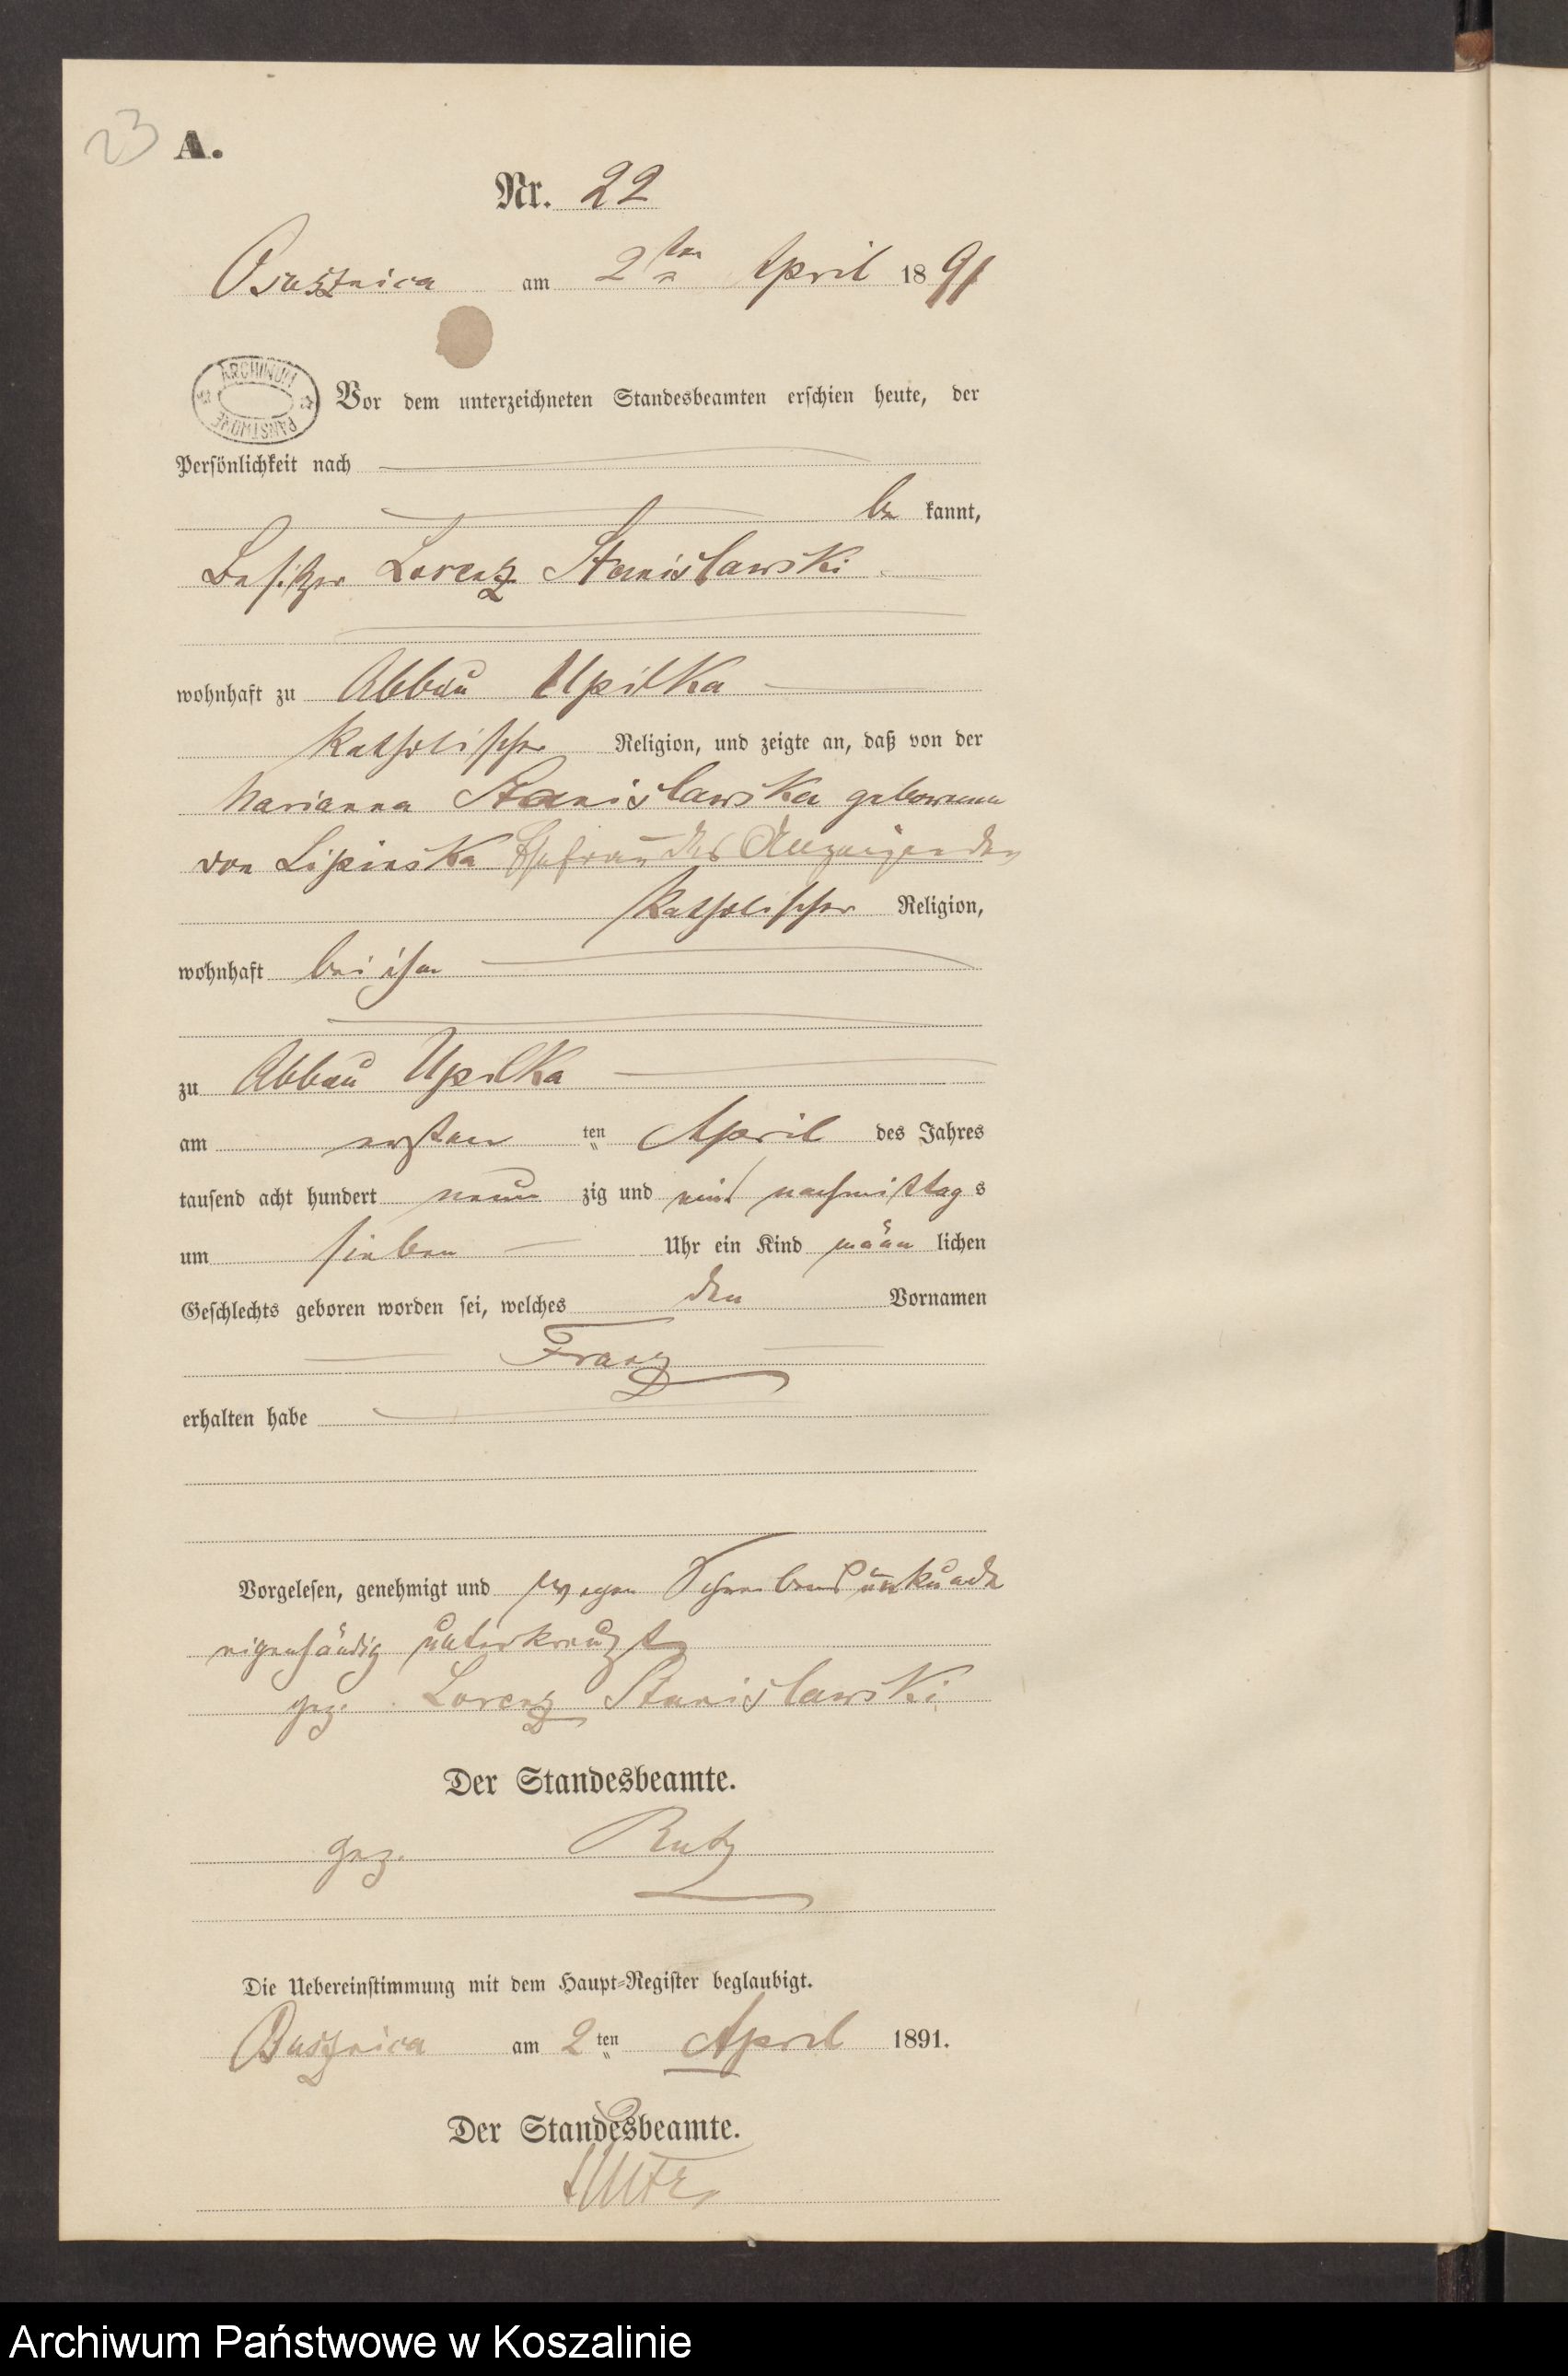 23
A.
Nr. 22
Osusznica am 2ten April 1891
ARCHIWUM PAŃSTWOWE
Vor dem unterzeichneten Standesbeamten erschien heute, der
Persönlichkeit nach
be kannt,
Besitzer Lorenz Stanislawski
wohnhaft zu Abbau Upilka
katholischer Religion, und zeigte an, daß von der
Marianna Stanislawska geborenen
von Lipinska Ehefrau des Anzeigenden
katholischer Religion,
wohnhaft bei ihm
zu Abbau Upilka
am ersten ten April des Jahres
tausend acht hundert neun zig und eins nachmittags
um sieben Uhr ein Kind männlichen
Geschlechts geboren worden sei, welches den Vornamen
Franz
erhalten habe
Vorgelesen, genehmigt und wegen Schreibensunkunde
eigenhändig unterkreuzt
gez. Lorenz Stanislawski
Der Standesbeamte.
gez. Rutz
Die Uebereinstimmung mit dem Haupt-Register beglaubigt.
am 2ten April 1891.
Der Standesbeamte.
Rutz
Archiwum Państwowe w Koszalinie